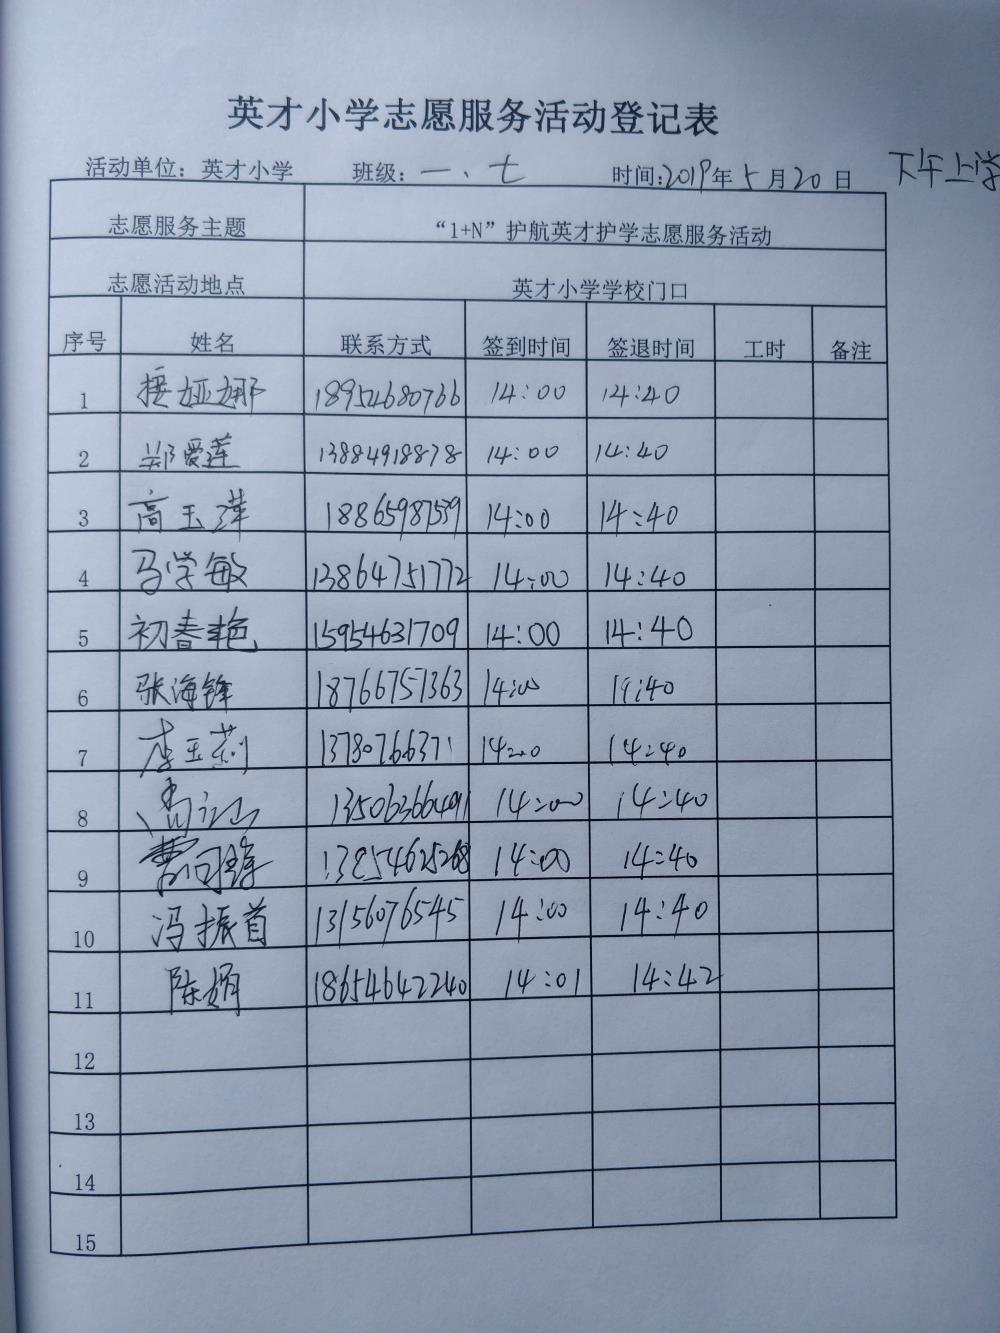 英才小学志愿服务活动登记表
活动单位：英才小学 班级：一、七 时间：2019年5月20日 下午上学
志愿服务主题 “1+N”护航英才护学志愿服务活动
志愿活动地点 英才小学学校门口
序号 姓名 联系方式 签到时间 签退时间 工时 备注
1 娅娜 18954680766 14:00 14:40
2 郑爱莲 13884918878 14:00 14:40
3 高玉萍 18865987539 14:00 14:40
4 马学敏 13864751772 14:00 14:40
5 初春艳 15954631709 14:00 14:40
6 张海锋 18766751363 14:00 14:40
7 李玉莉 13780766371 14:00 14:40
8 13506366491 14:00 14:40
9 曹 13854625268 14:00 14:40
10 冯振首 13156076545 14:00 14:40
11 陈娟 18654642240 14:01 14:42
12
13
14
15